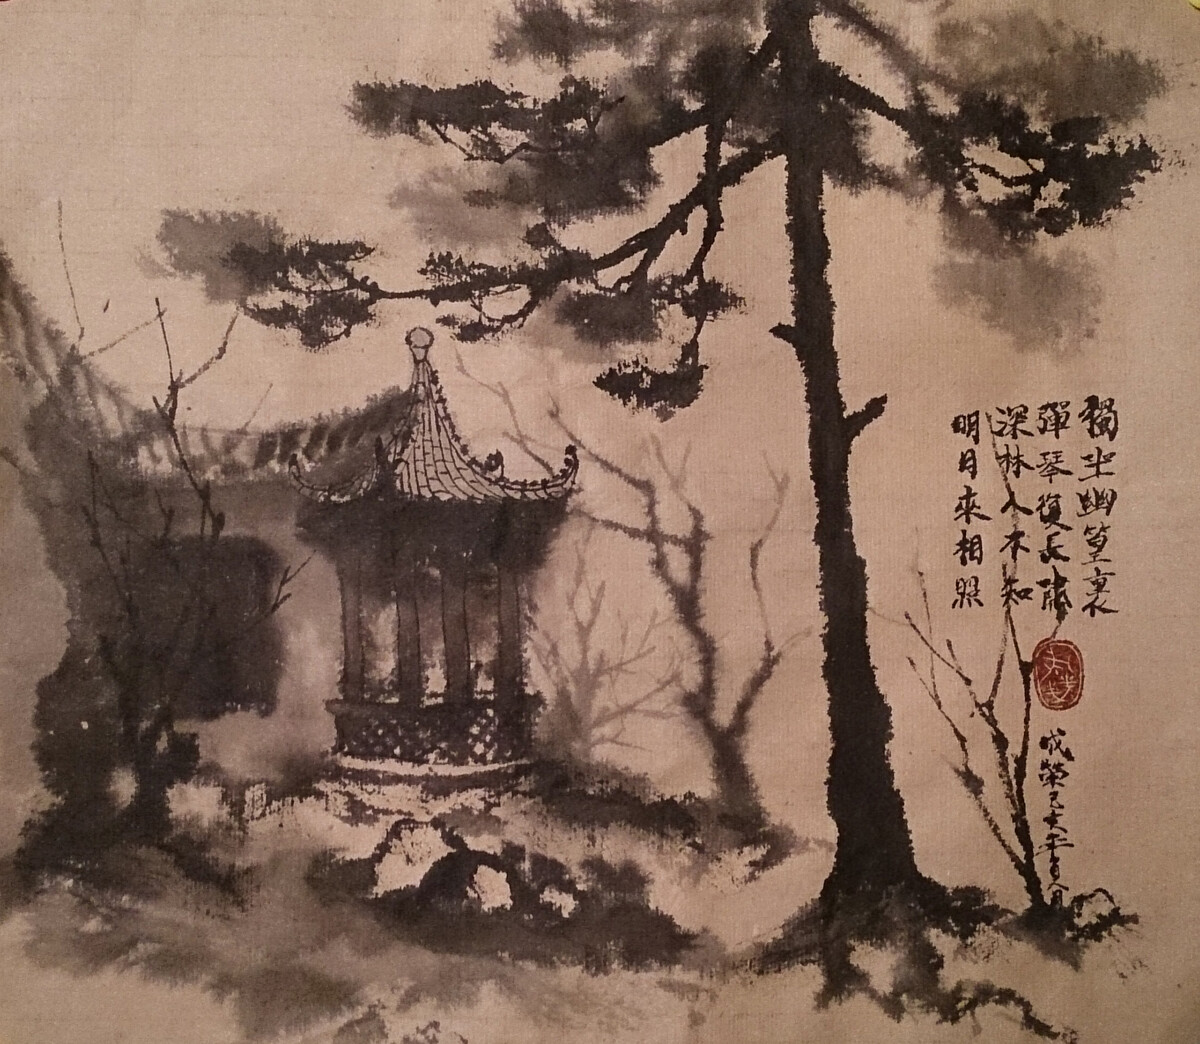 獨坐幽篁裏
彈琴復長嘯
深林人不知
明月來相照
成榮己亥年